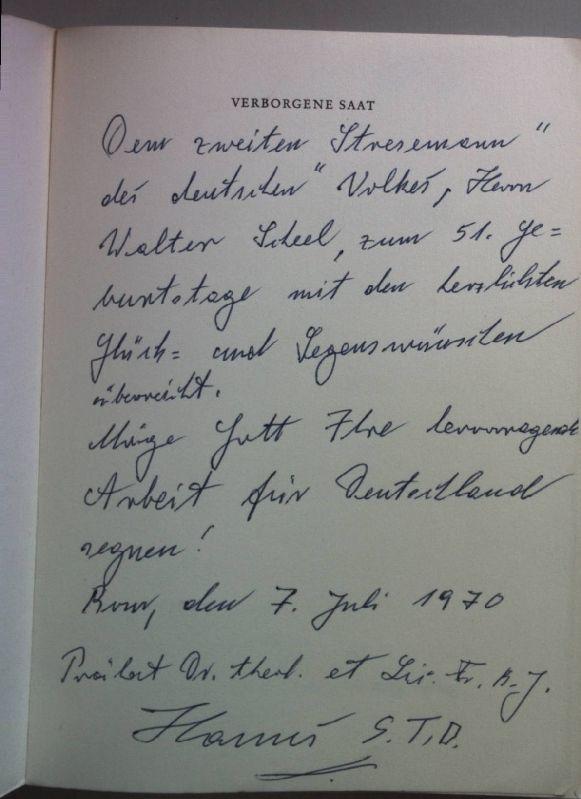 VERBORGENE SAAT
Dem zweiten Stresemann"
des deutschen" Volkes, Herrn
Walter Scheel, zum 51. Ge=
burtstage mit den herzlichsten
Glück= und Segenswünschen
überreicht.
Möge Gott Ihre hervorragende
Arbeit für Deutschland
segnen!
Rom, den 7. Juli 1970
Prälat Dr. theol. et Lic.
S.T.D.